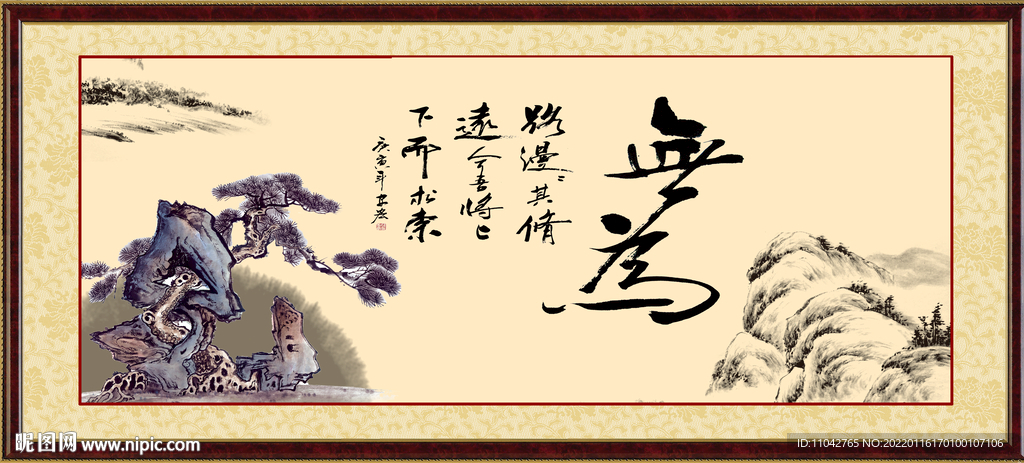 無為
路漫〻其脩
遠兮吾將上
下而求索
庚寅年
昵图网 www.nipic.com
ID:11042765 NO:20220116170100107106